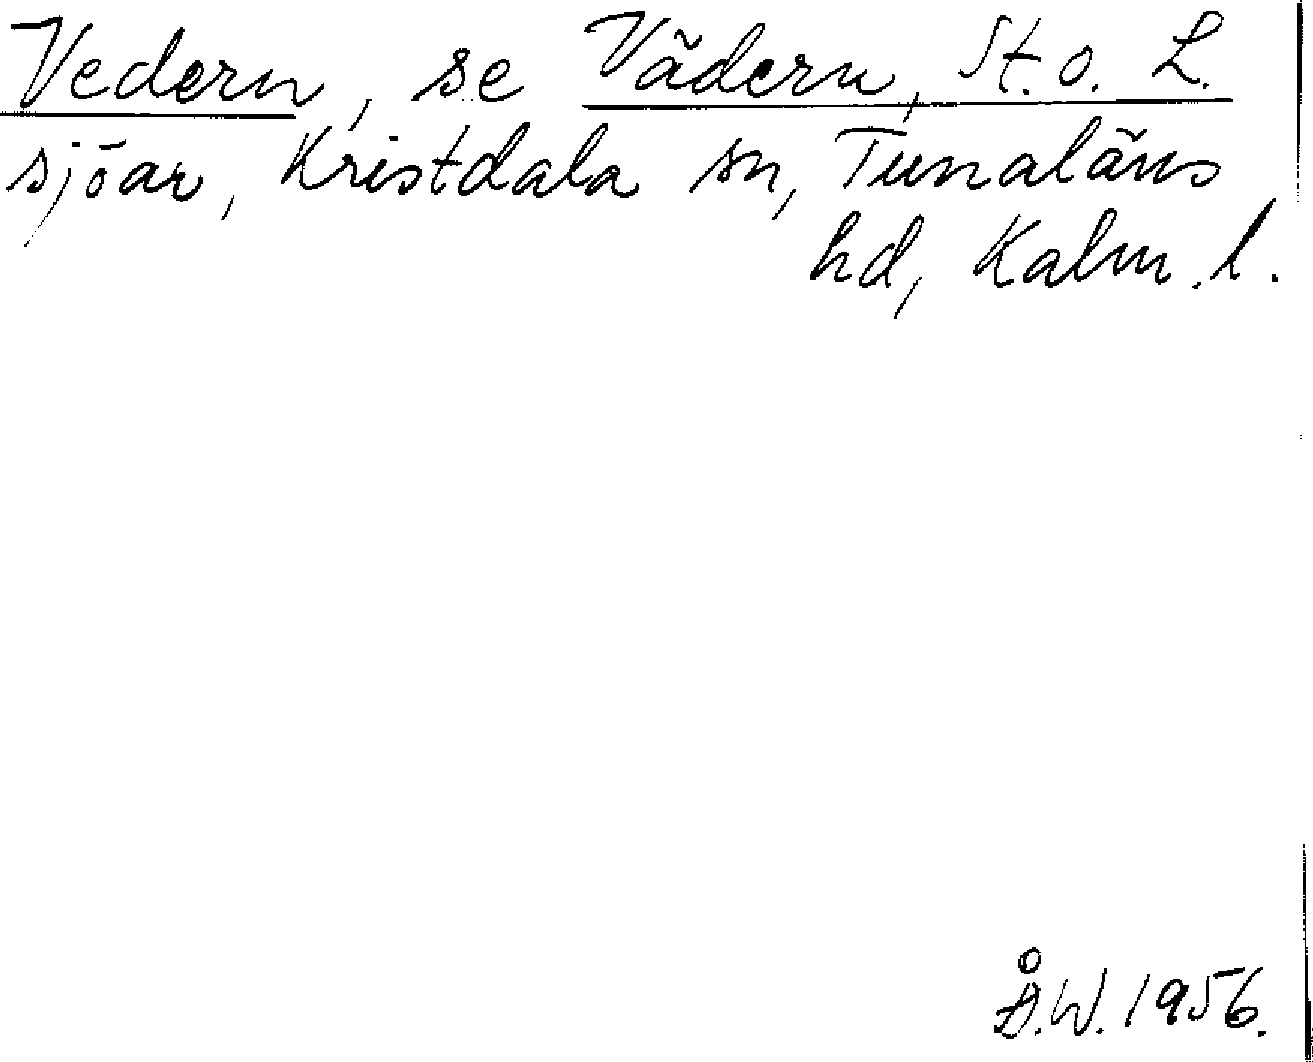 Vedern, se Vädern, St. o. L.
sjöar, Kristdala sn, Tunaläns
hd, Kalm. l.
Å.W. 1956.